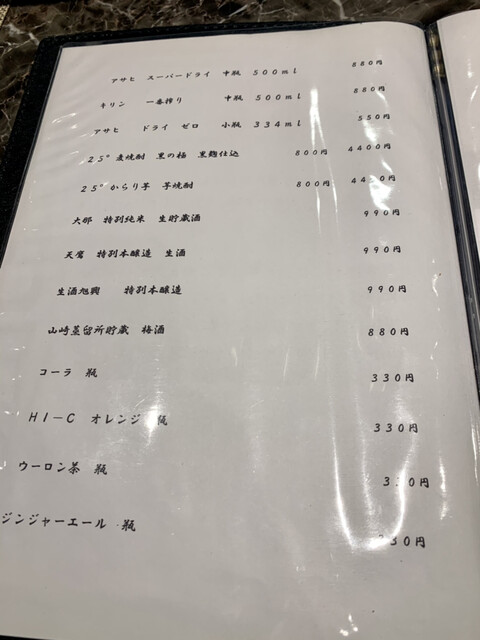 アサヒ スーパードライ 中瓶 500ml 880円
キリン 一番搾り 中瓶 500ml 880円
アサヒ ドライ ゼロ 小瓶 334ml 550円
25°麦焼酎 黒の極 黒麹仕込 800円 4400円
25°からり芋 芋焼酎 800円 4400円
大那 特別純米 生貯蔵酒 990円
天鷹 特別本醸造 生酒 990円
生酒旭興 特別本醸造 990円
山崎蒸留所貯蔵 梅酒 880円
コーラ 瓶 330円
HI-C オレンジ 瓶 330円
ウーロン茶 瓶 330円
ジンジャーエール 瓶 330円